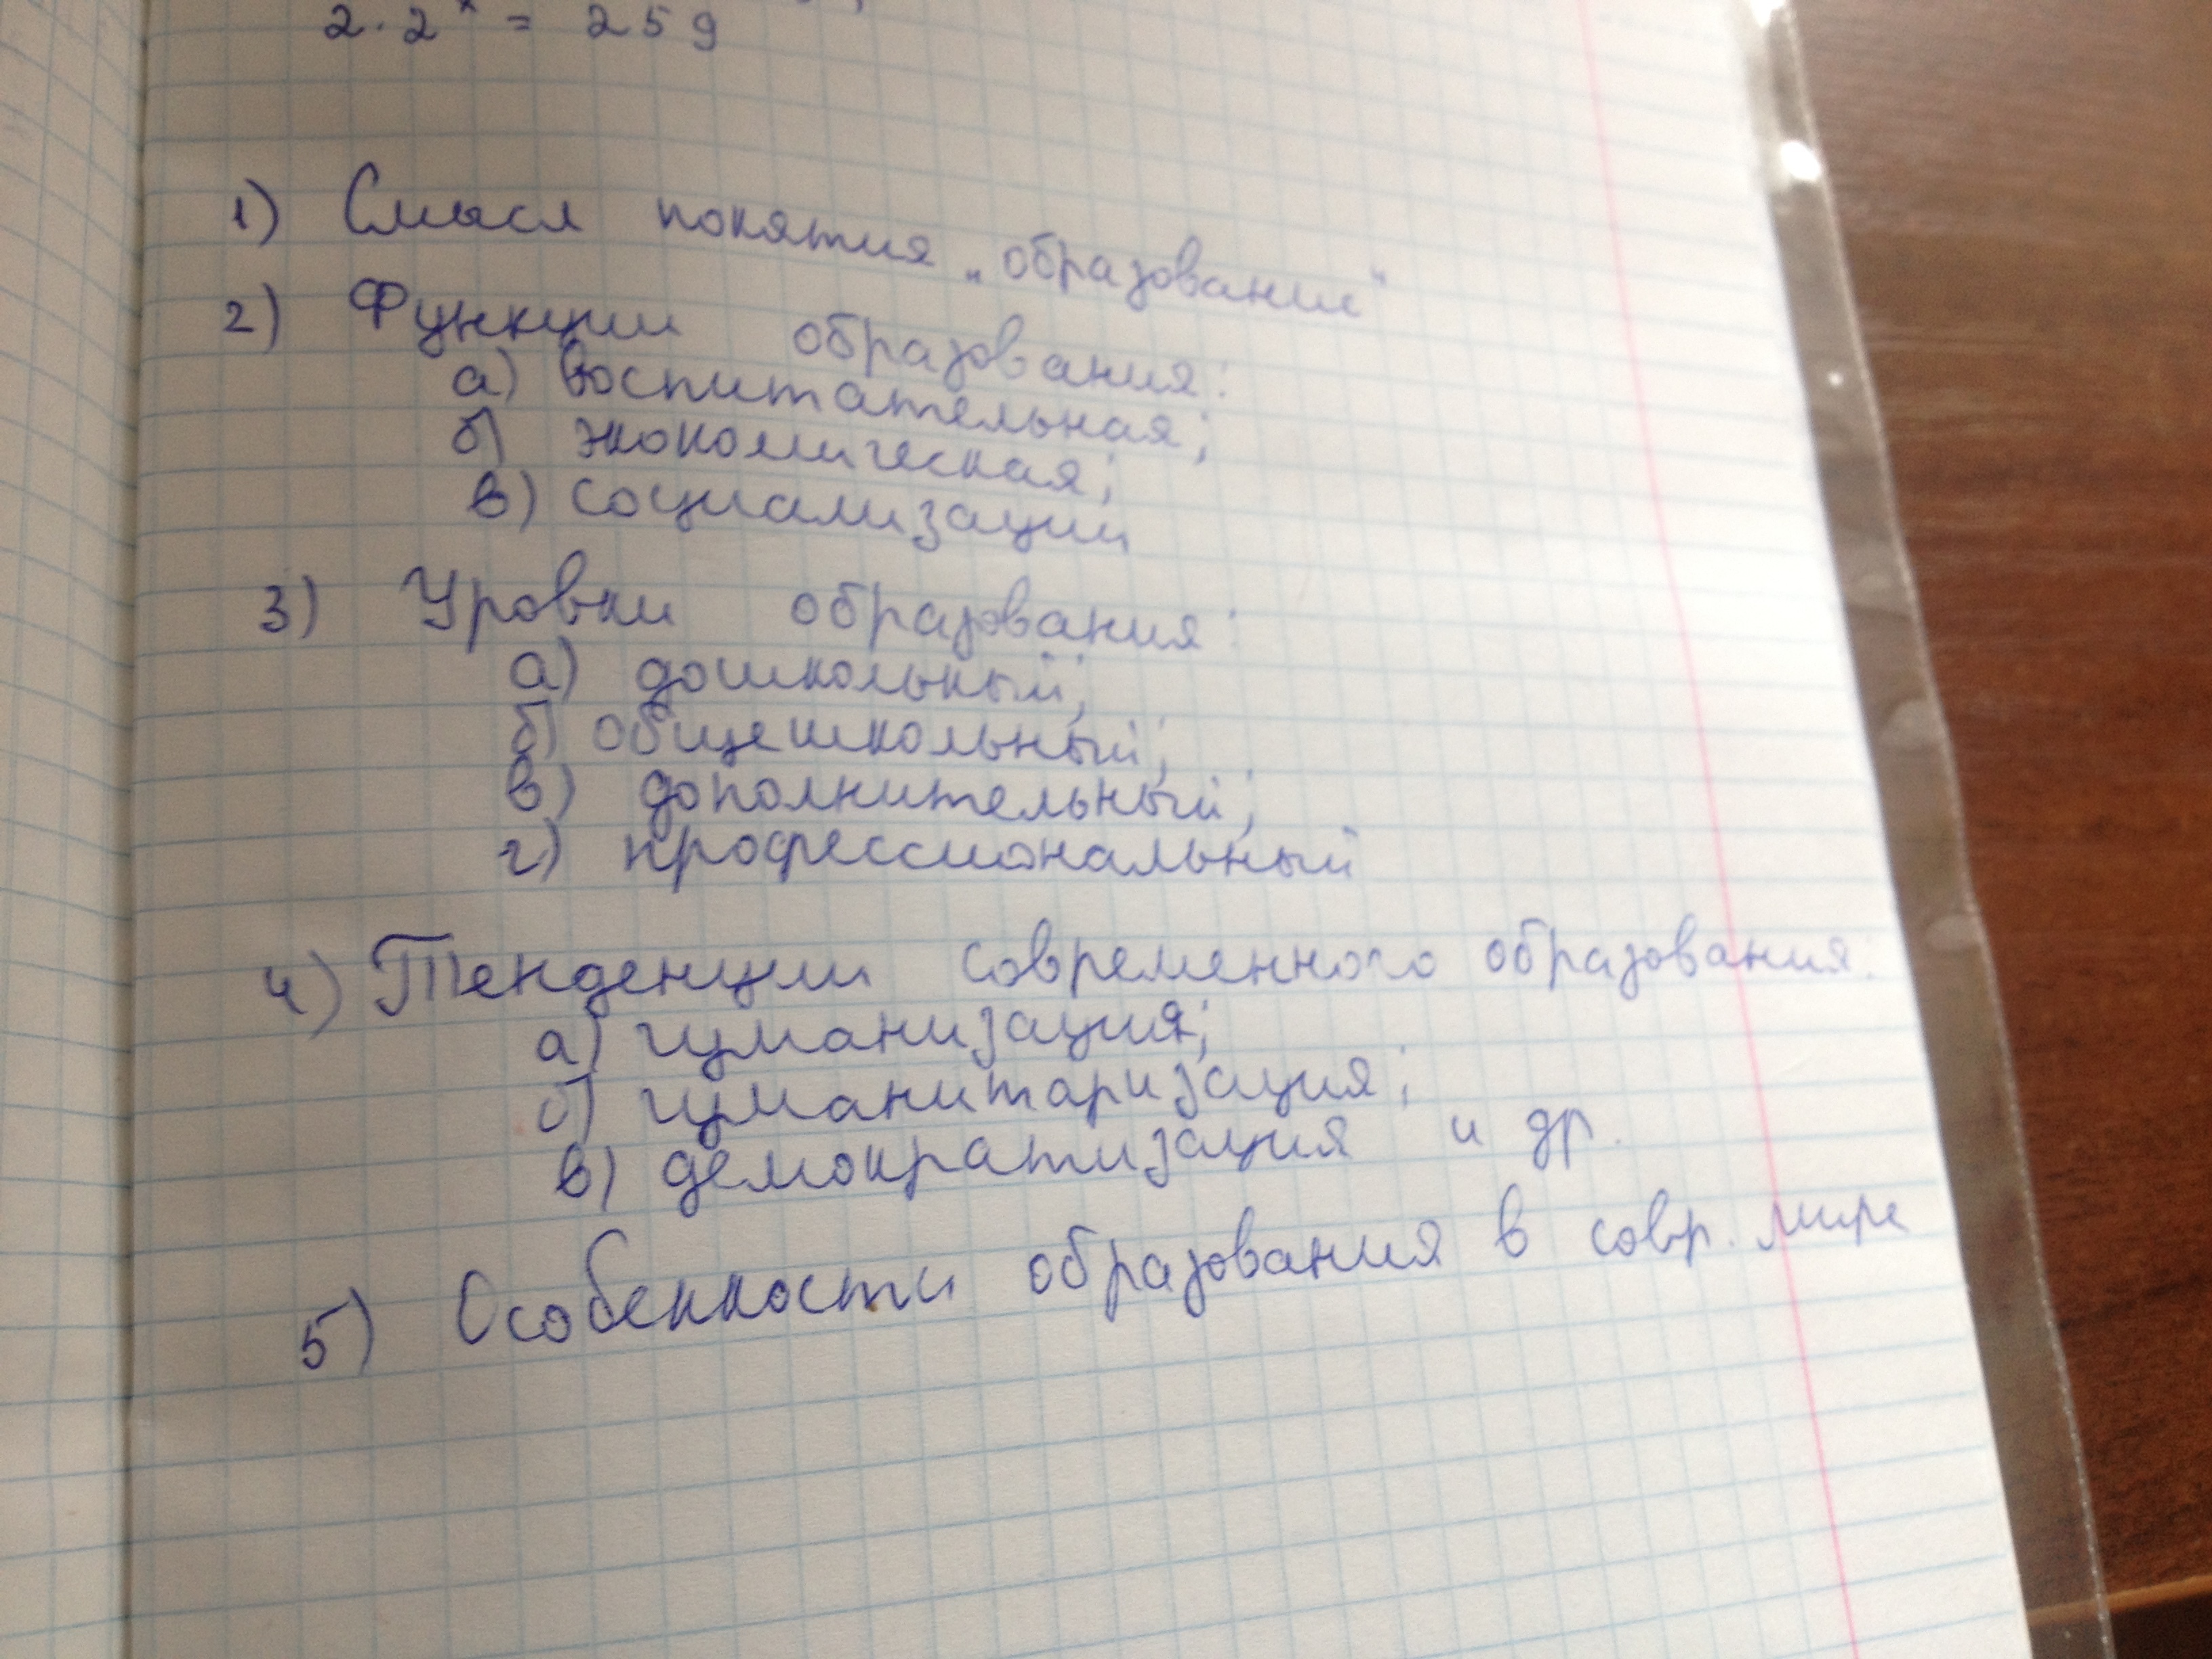 2·2ˣ = 259
1) Смысл понятия „образование"
2) Функции образования:
а) воспитательная;
б) экономическая;
в) социализации
3) Уровни образования:
а) дошкольный;
б) общешкольный;
в) дополнительный;
г) профессиональный
4) Тенденции современного образования:
а) гуманизация;
б) гуманитаризация;
в) демократизация и др.
5) Особенности образования в совр. мире